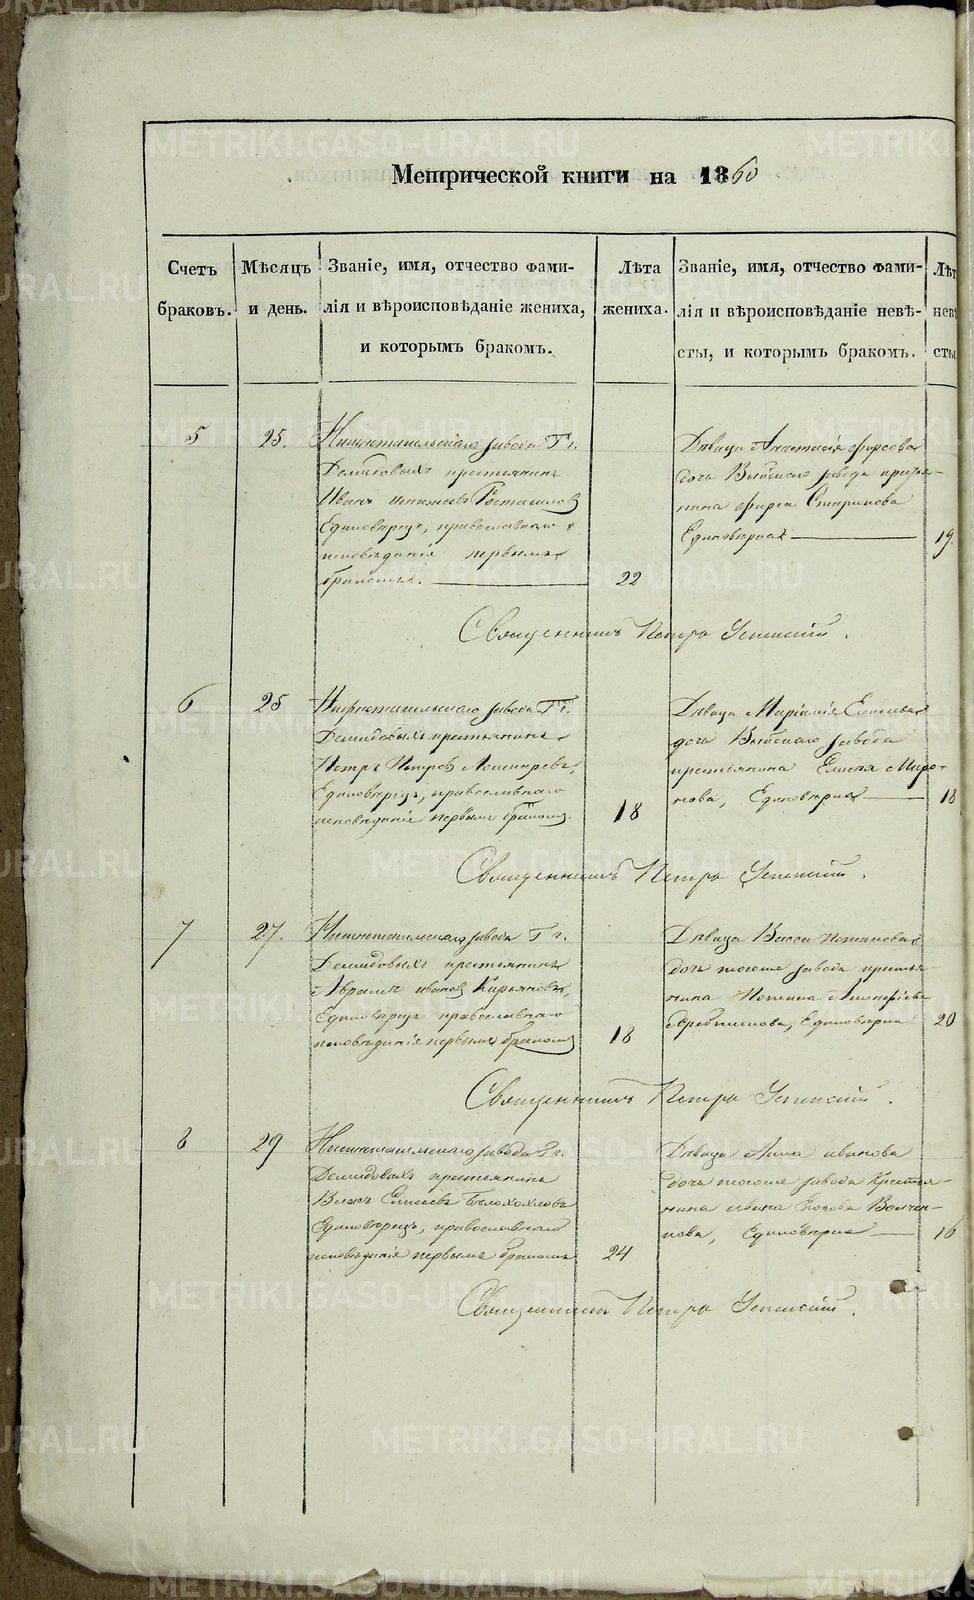 Метрической книги на 1860
Счетъ браковъ.
Мѣсяцъ и день.
Званіе, имя, отчество фами-
лія и вѣроисповѣданіе жениха,
и которымъ бракомъ.
Лѣта жениха.
Званіе, имя, отчество фами-
лія и вѣроисповѣданіе невѣ-
сты, и которымъ бракомъ.
Лѣт
невѣ
сты
5
25.
Нижнетагильскаго завода Гг.
Демидовыхъ крестьянинъ
Иванъ
Единовѣрецъ, православнаго
исповѣданія первымъ
бракомъ.
22
Дѣвица Анастасія Фирсова
дочь Выйскаго завода крестья-
нина Фирса
Единовѣрка
19.
Священникъ Петръ Успенскій.
6
25
Нижнетагильскаго завода Гг.
Демидовыхъ крестьянинъ
Петръ Петровъ
Единовѣрецъ, православнаго
исповѣданія первымъ бракомъ.
18
Дѣвица Елисеева
дочь Выйскаго завода
крестьянина Елисея Миро-
нова, Единовѣрка
18
Священникъ Петръ Успенскій.
7
27.
Нижнетагильскаго завода Гг.
Демидовыхъ крестьянинъ
Аврамъ Ивановъ Кирьяновъ,
Единовѣрецъ православнаго
исповѣданія первымъ бракомъ
18
Дѣвица Васса Потапова
дочь тогоже завода крестья-
нина Потапа
Единовѣрка
20
Священникъ Петръ Успенскій.
8
29
Нижнетагильскаго завода Гг.
Демидовыхъ крестьянинъ
Власъ Елисеевъ Бѣлохохловъ
Единовѣрецъ, православнаго
исповѣданія первымъ бракомъ
24
Дѣвица Анна Иванова
дочь тогоже завода крестья-
нина Ивана
нова, Единовѣрка
16
Священникъ Петръ Успенскій.
METRIKI.GASO-URAL.RU